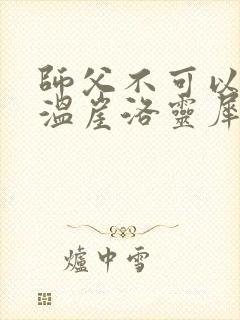 師父不可以
溫崖洛靈犀
爐中雪